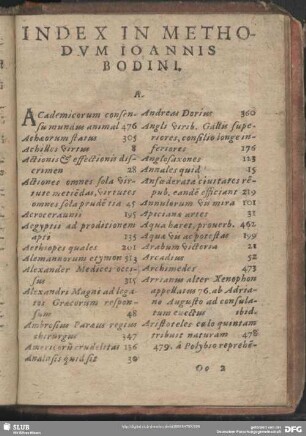 INDEX IN METHO-
DVM IOANNIS
BODINI.
A.
ACademicorum consen-
su mundus animal 476
Achæorum status 305
8
Actionis & effectionis dis-
crimen 28
Actiones omnes sola vir-
tute metiēdas, virtutes
omnes sola prudētia 45
Acroceraunii 195
Aegyptii ad proditionem
apti 235
Aethiopes quales 201
Alemannorum etymon 513
Alexander Medices occi-
sus 315
Alexandri Magni ad lega
tos Græcorum respon-
sum 48
Ambrosius Paræus regius
chirurgus 347
crudelitas 136
Analysis quid sit 30
Andreas Dorius 360
Angli virib. Gallis supe-
riores, consilio longe in-
feriores 176
Anglosaxones 123
Annales quid 15
Anfœderata ciuitates rē-
pub. eandē efficiant 219
Annulorum vis mira 101
Apiciana artes 31
Aqua hæret, prouerb. 462
Aquæ vis ac potestas 199
Arabum victoria 21
Arcadum 52
Archimedes 473
Arrianus alter Xenophon
appellatus 76. ab Adria-
no Augusto ad consula-
tum euectus ibid.
Aristoteles cælo quintam
tribuit naturam 478
479. à Polybio reprehē-
Oo 2
SLUB
Wir führen Wissen.
DFG
Deutsche Forschungsgemeinschaft